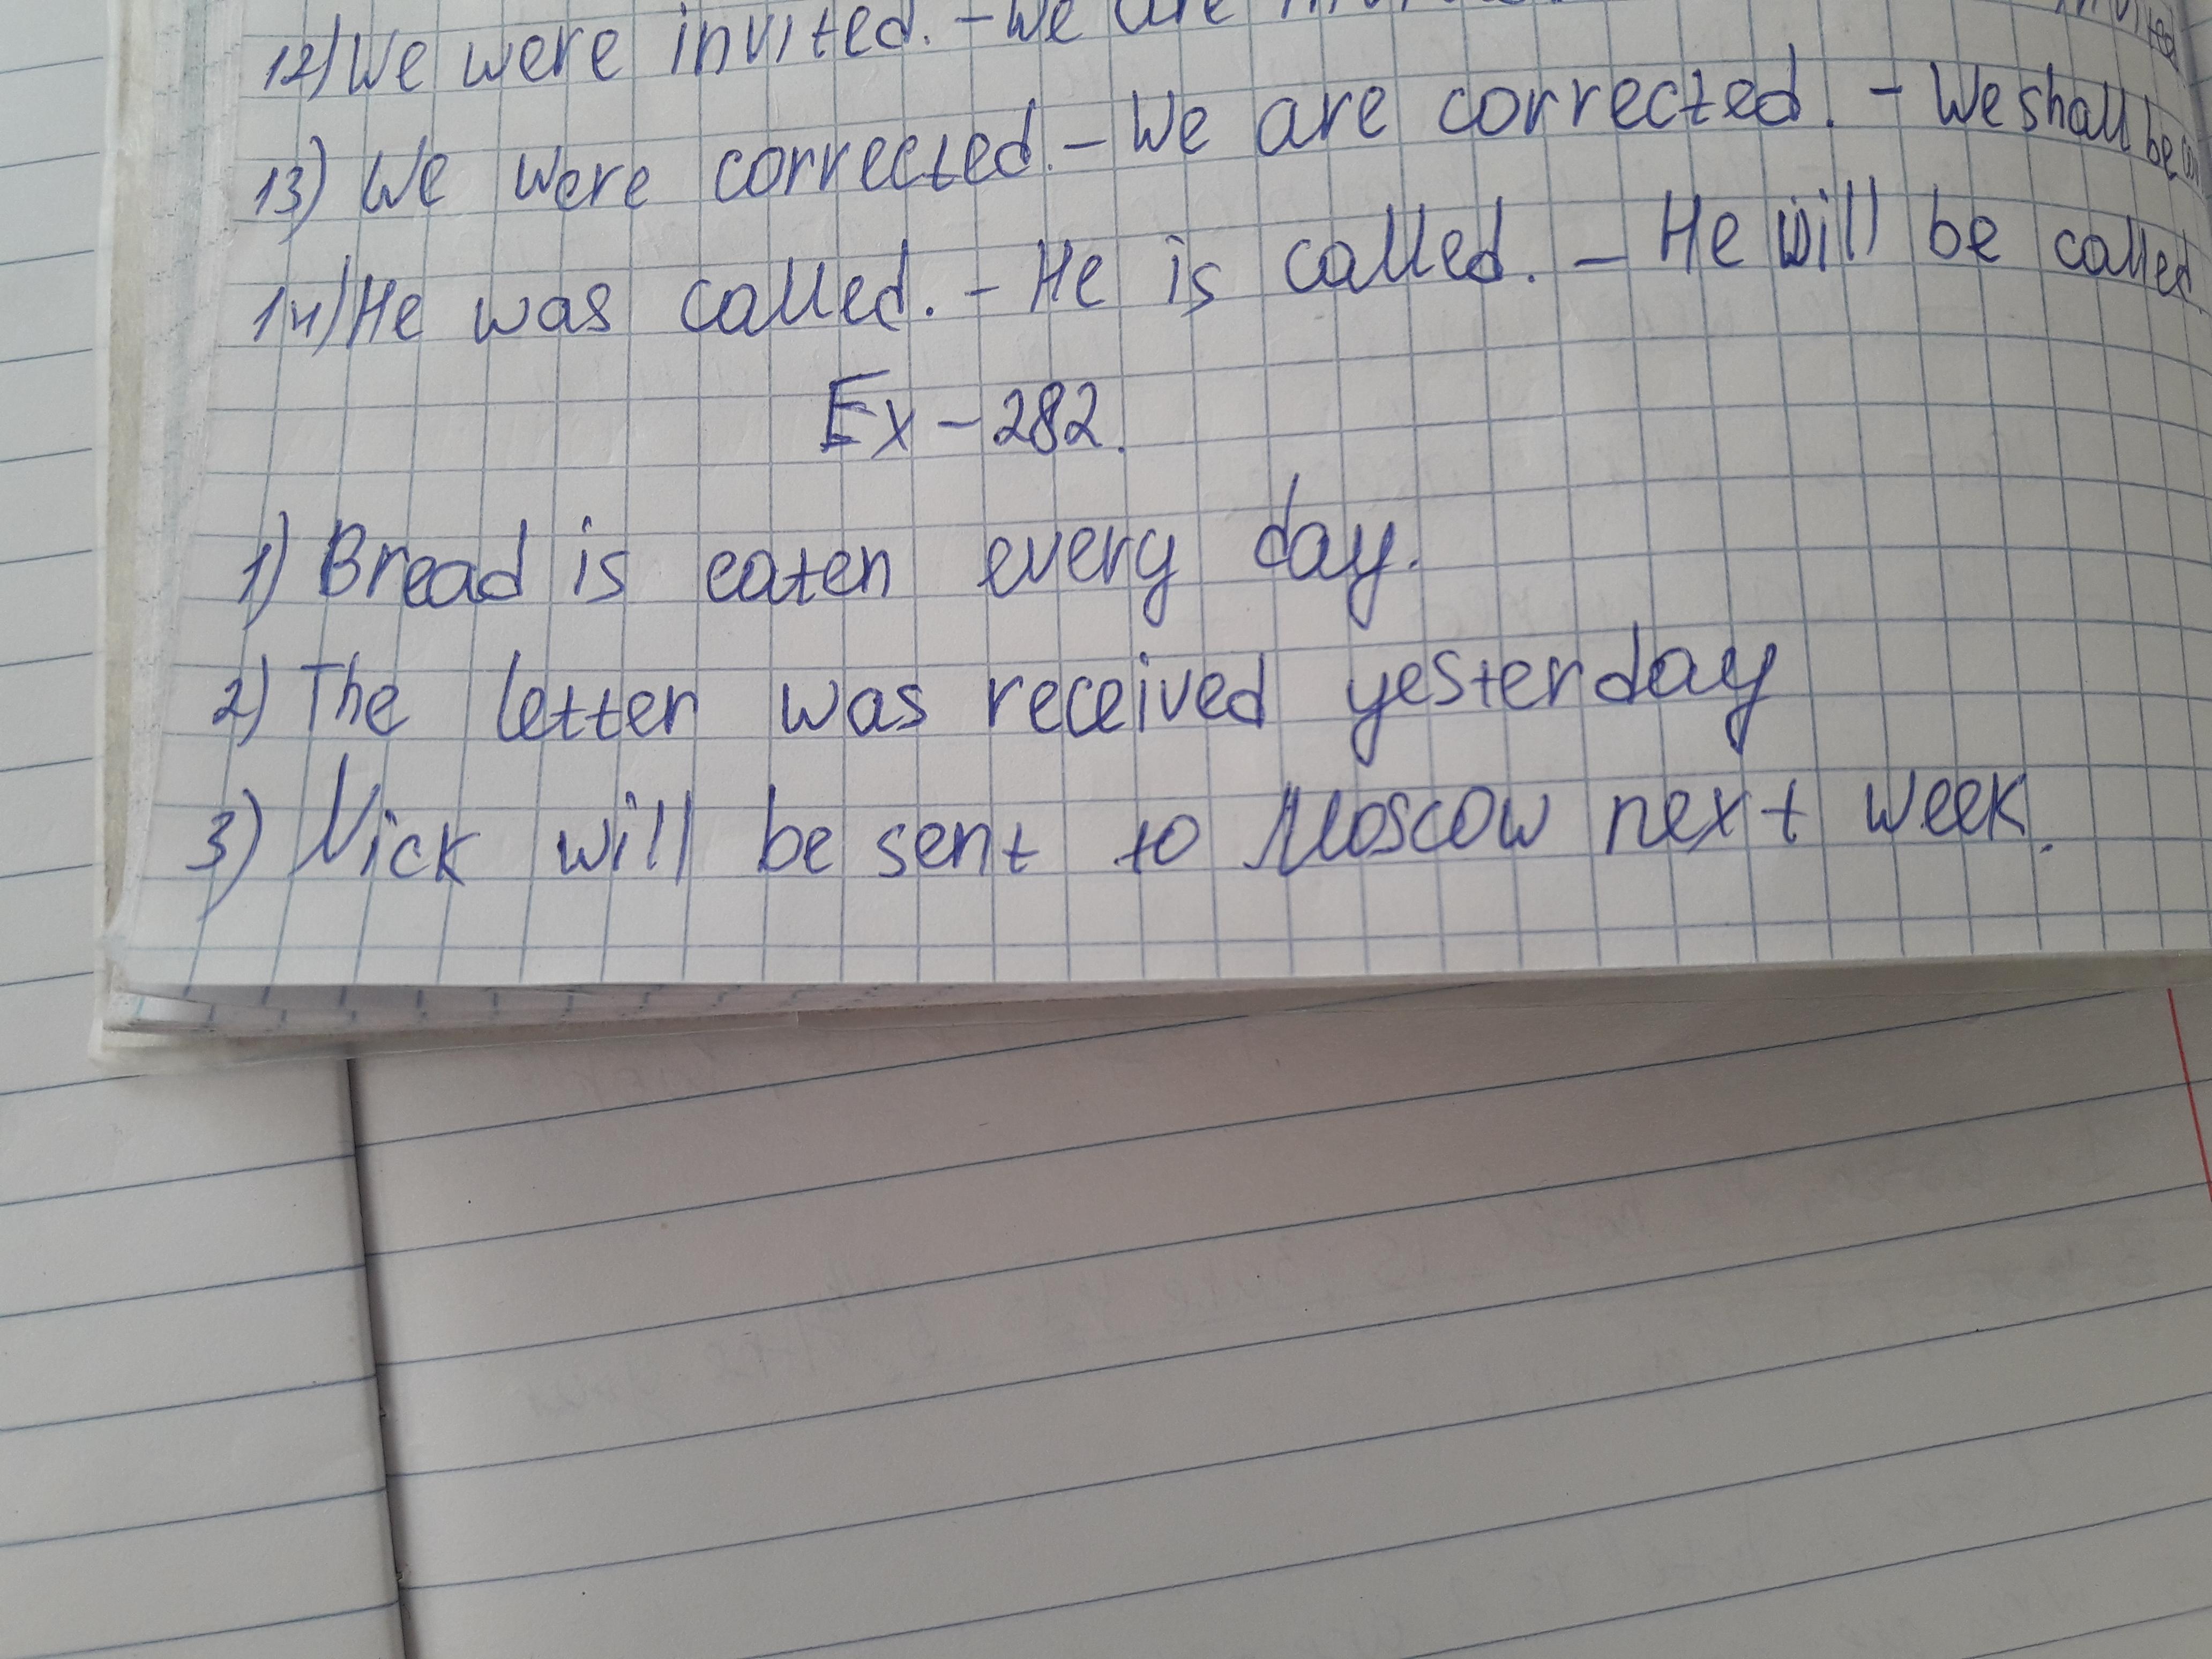 12) We were invited. - We are
13) We were corrected. - We are corrected. - We shall be
14) He was called. - He is called. - He will be called.
Ex - 282.
1) Bread is eaten every day.
2) The letter was received yesterday
3) Nick will be sent to Moscow next week.